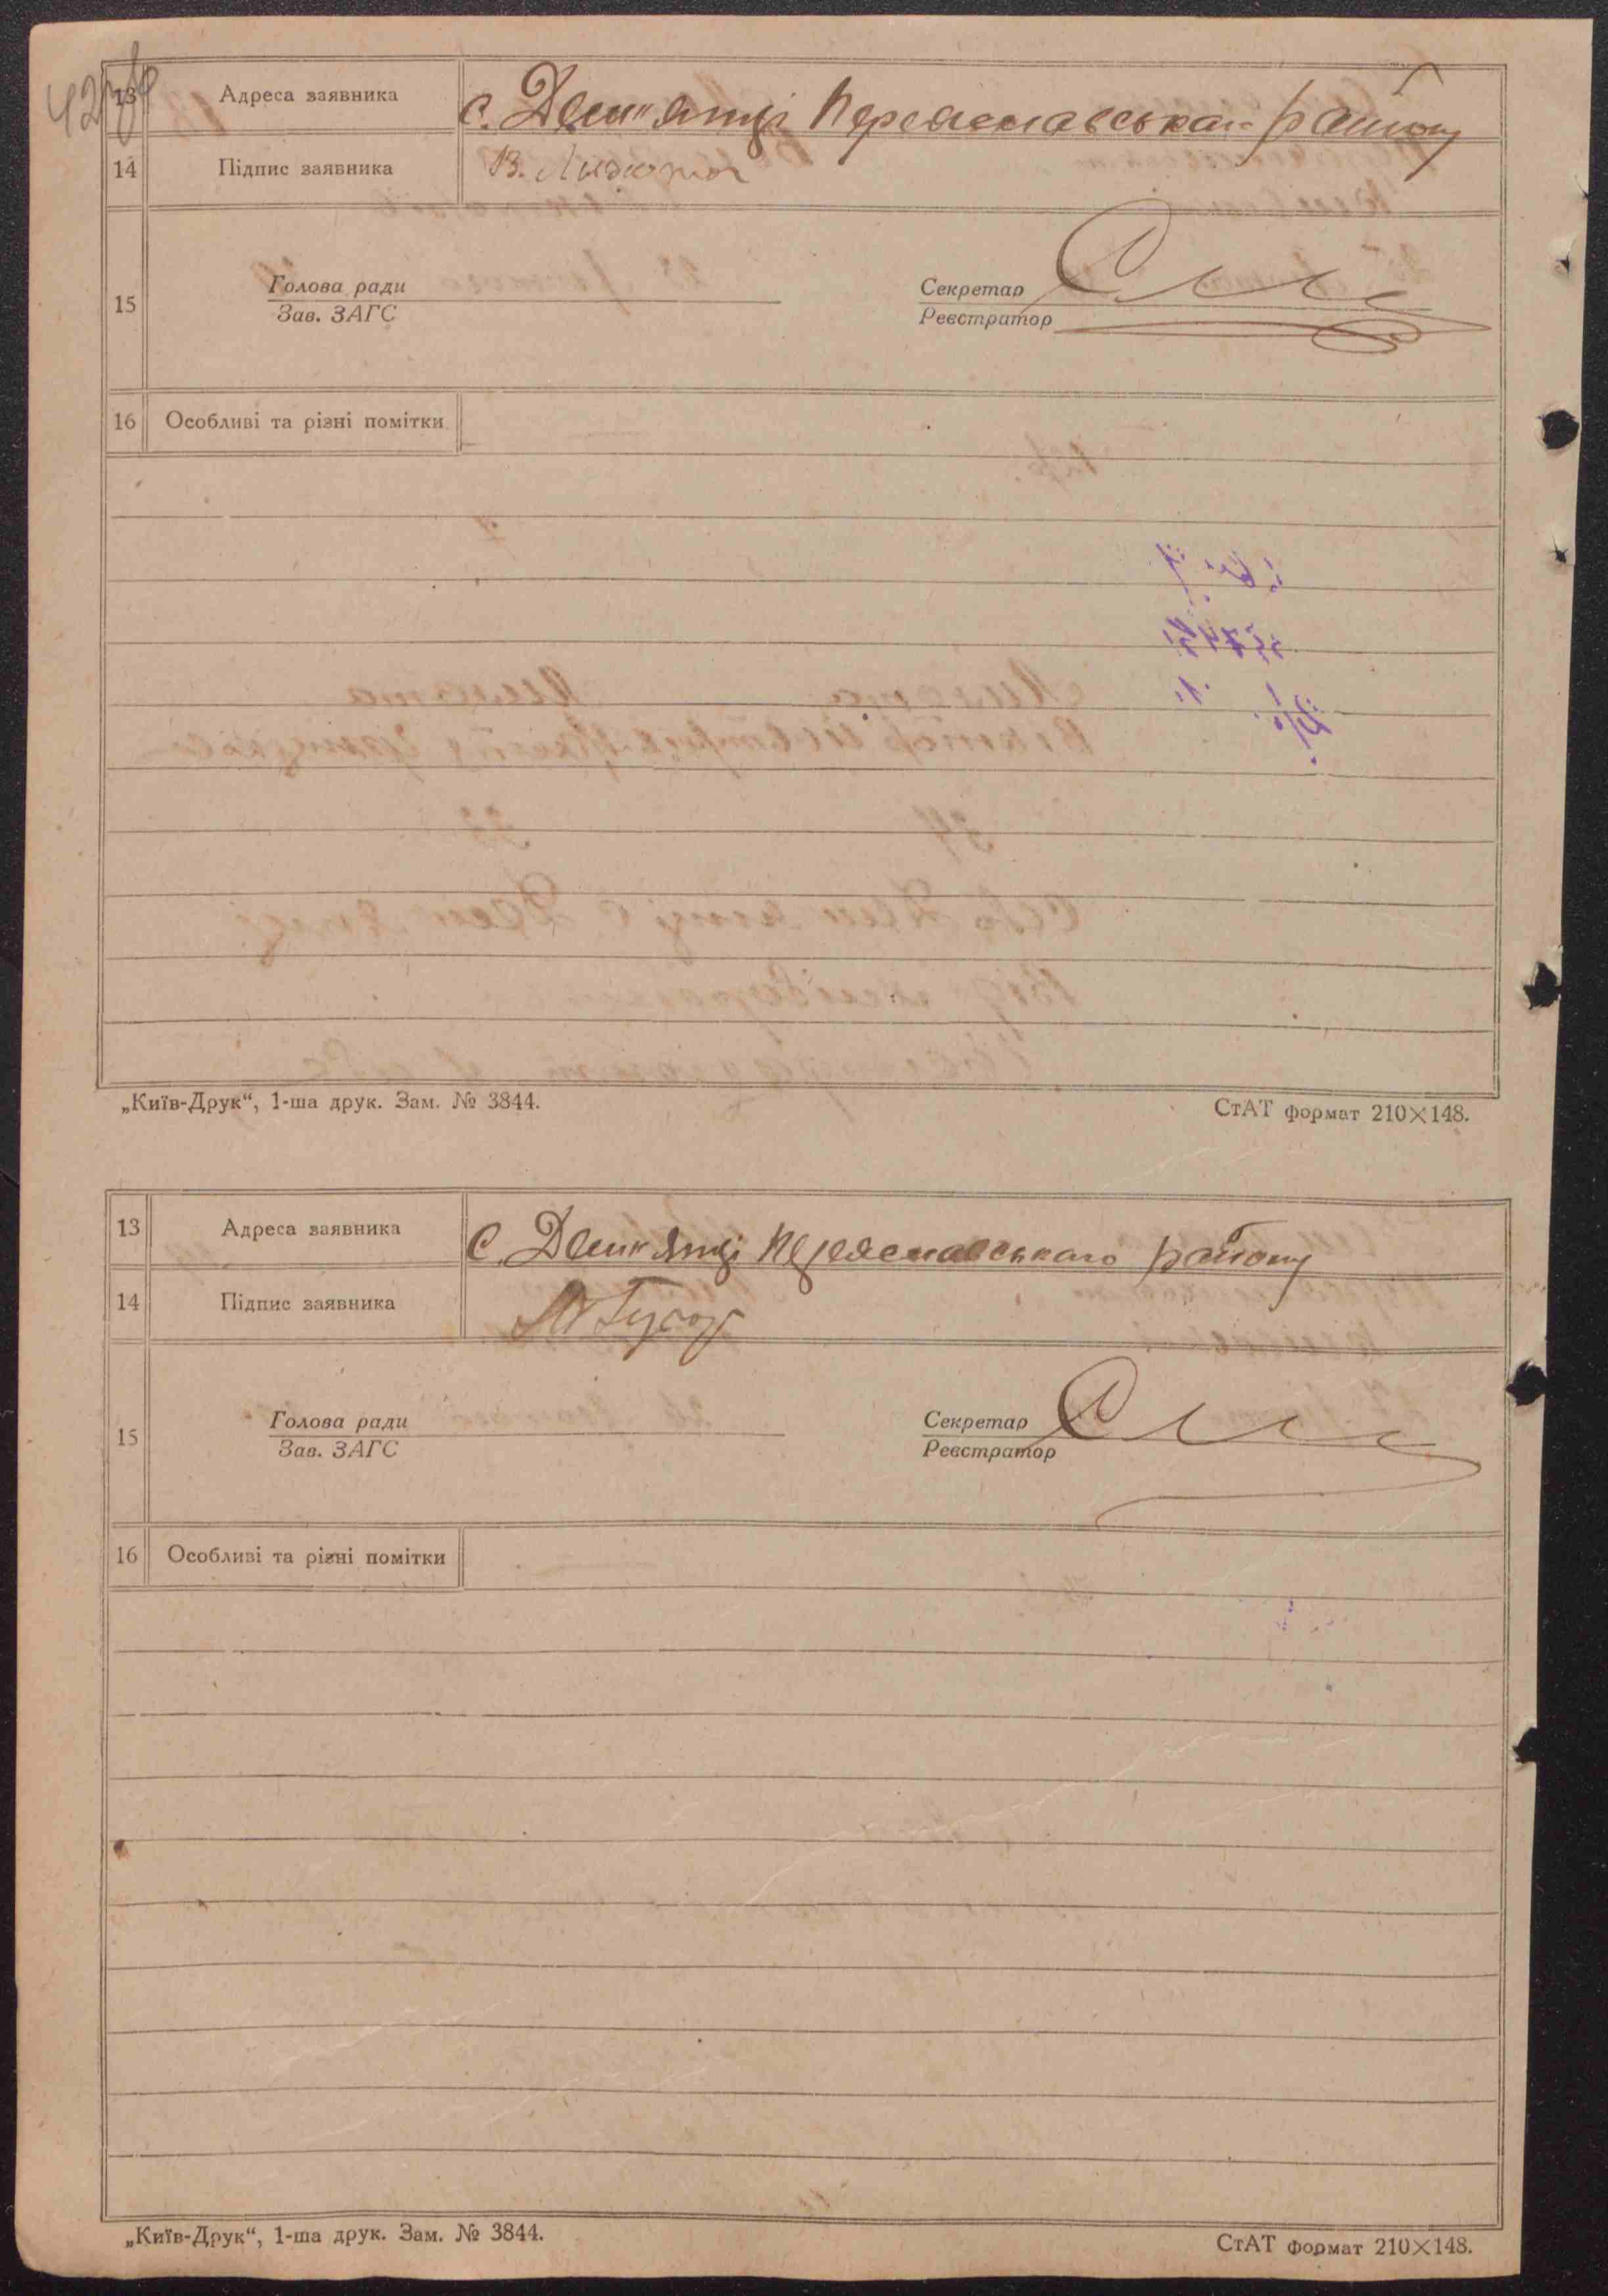 42
13 Адреса заявника с. Дем"янці Переяславськаго району
14 Підпис заявника В.
15 Голова ради Секретар
Зав. ЗАГС Реєстратор
16 Особливі та різні помітки
„Київ-Друк“, 1-ша друк. Зам. № 3844. СтАТ формат 210×148.
13 Адреса заявника с. Дем"янці Переяславського району
14 Підпис заявника
15 Голова ради Секретар
Зав. ЗАГС Реєстратор
16 Особливі та різні помітки
„Київ-Друк“, 1-ша друк. Зам. № 3844. СтАТ формат 210×148.